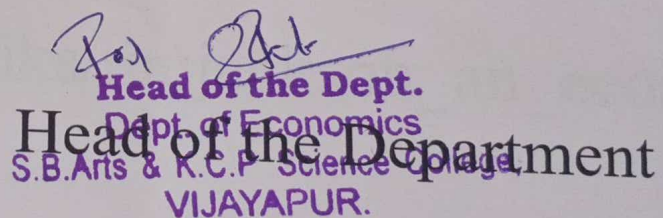 Head of the Dept.
Dept. of Economics
Head of the Department
S.B.Arts & K.C.P Science College,
VIJAYAPUR.